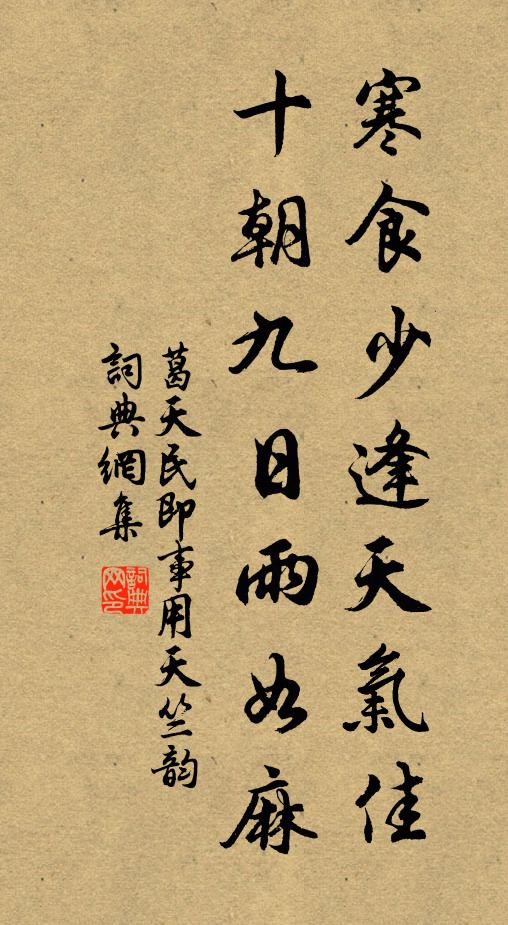 寒食少逢天氣佳
十朝九日雨如麻
葛天民即事用天竺韵
詞典網集
詞典网印